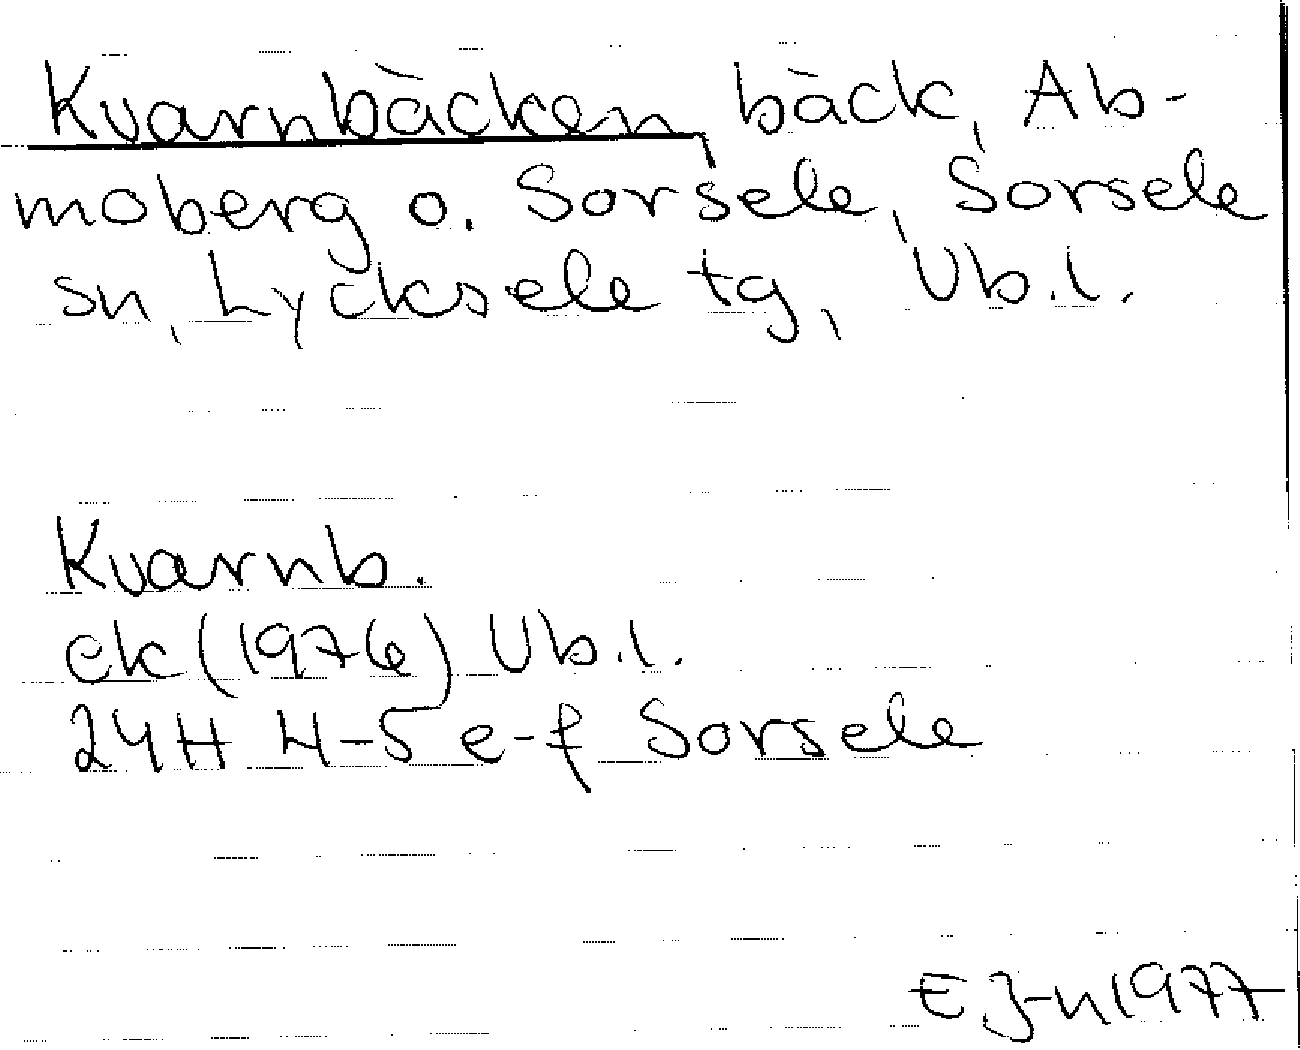 Kvarnbäcken, bäck, Ab-
moberg o. Sorsele, Sorsele
sn, Lycksele tg, Vb.l.
Kvarnb.
ek (1976) Vb.l.
24H 4-5 e-f Sorsele
E J-n 1977